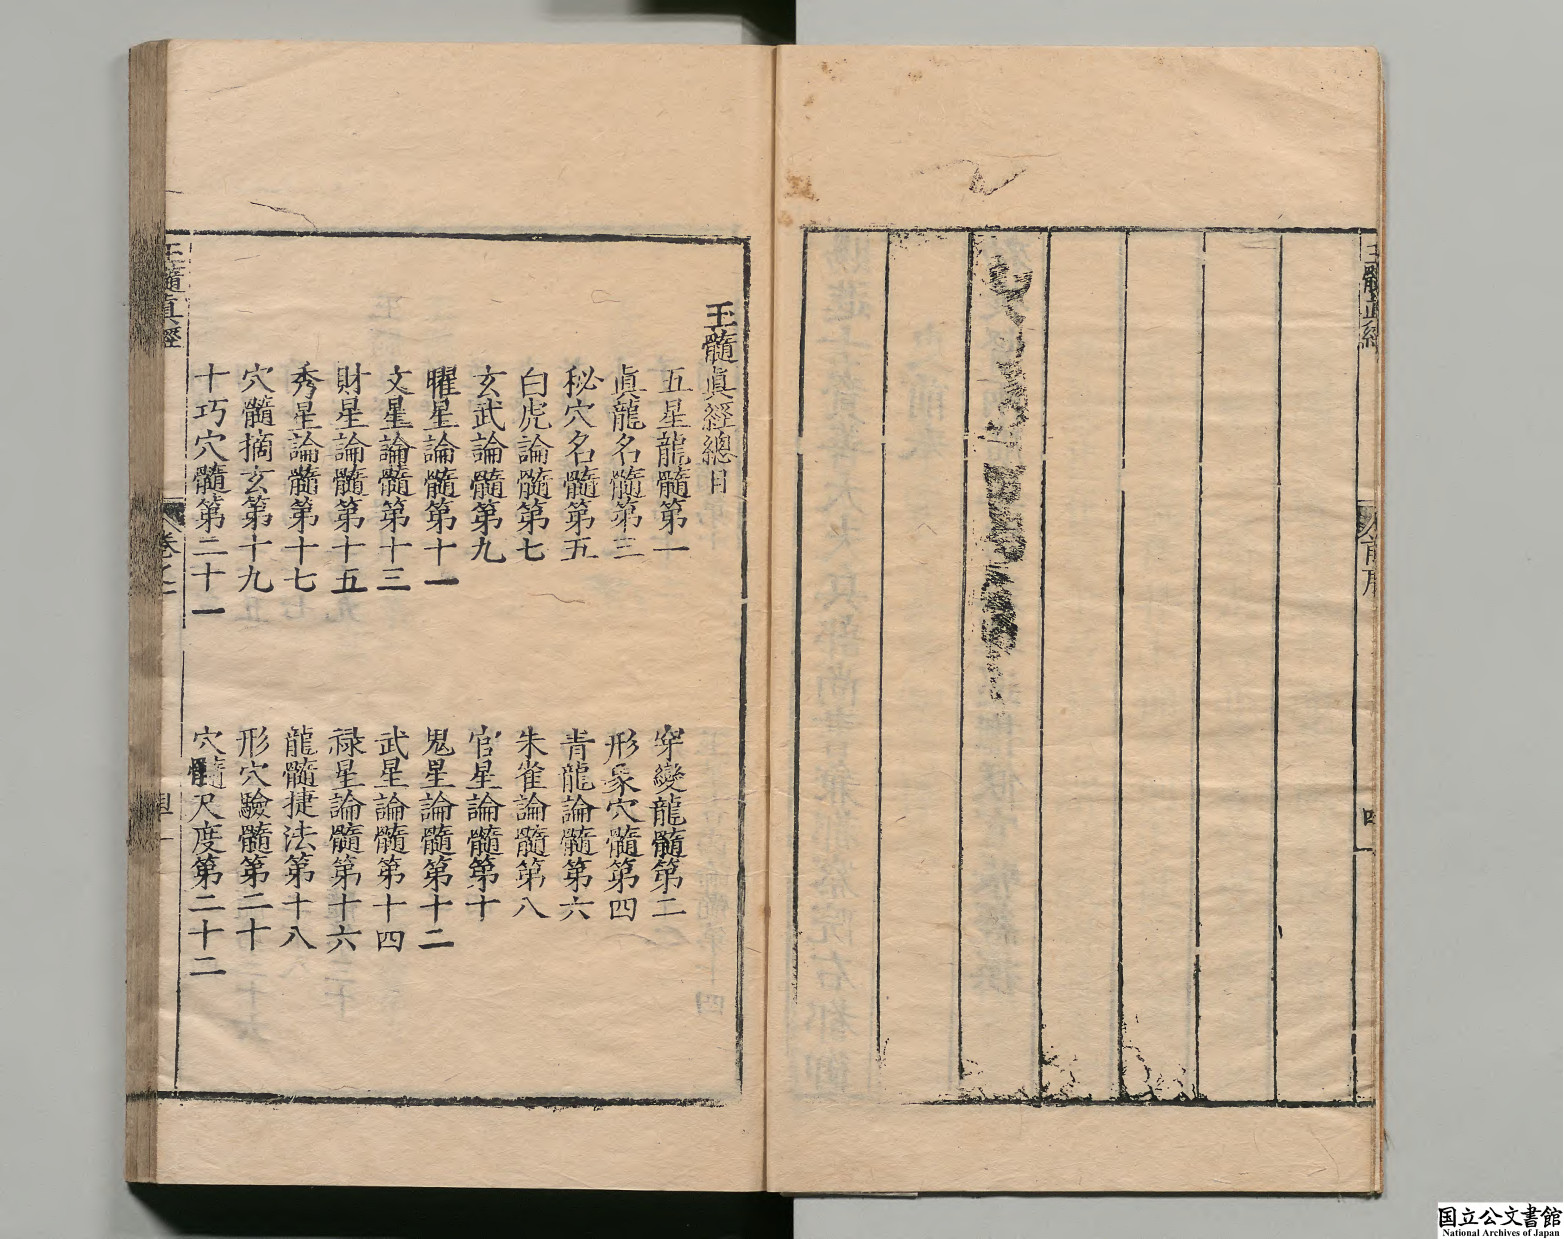 玉髓真經
前序
玉髓眞經總目
五星龍髓第一
穿變龍髓第二
眞龍名髓第三
形象穴髓第四
秘穴名髓第五
青龍論髓第六
白虎論髓第七
朱雀論髓第八
玄武論髓第九
官星論髓第十
曜星論髓第十一
鬼星論髓第十二
文星論髓第十三
武星論髓第十四
財星論髓第十五
禄星論髓第十六
秀星論髓第十七
龍髓捷法第十八
穴髓摘玄第十九
形穴驗髓第二十
十巧穴髓第二十一
穴髓尺度第二十二
玉髓眞經
卷之一
国立公文書館
National Archives of Japan